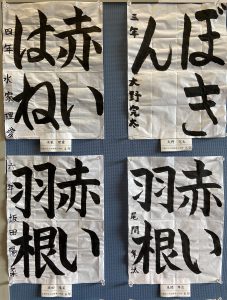 ぼき
ん
三年 大野完太
赤い
はね
四年 水 理愛
赤い
羽根
尾関 汰
赤い
羽根
六年 坂田